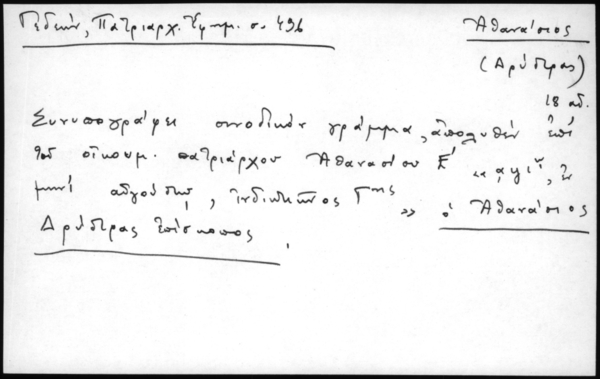 Γεδεών, Πατριαρχ. Ἐφημ. σ. 496
Ἀθανάσιος
(Δρύστρας)
18 αἰ.
Συνυπογράφει συνοδικόν γράμμα, ἀπολυθέν ἐπί
τοῦ οἰκουμ. πατριάρχου Ἀθανασίου Ε´ «͵αψιʹ, ἐν
μηνί αὐγούστῳ, ἰνδικτιῶνος Γης» ὁ Ἀθανάσιος
Δρύστρας ἐπίσκοπος.